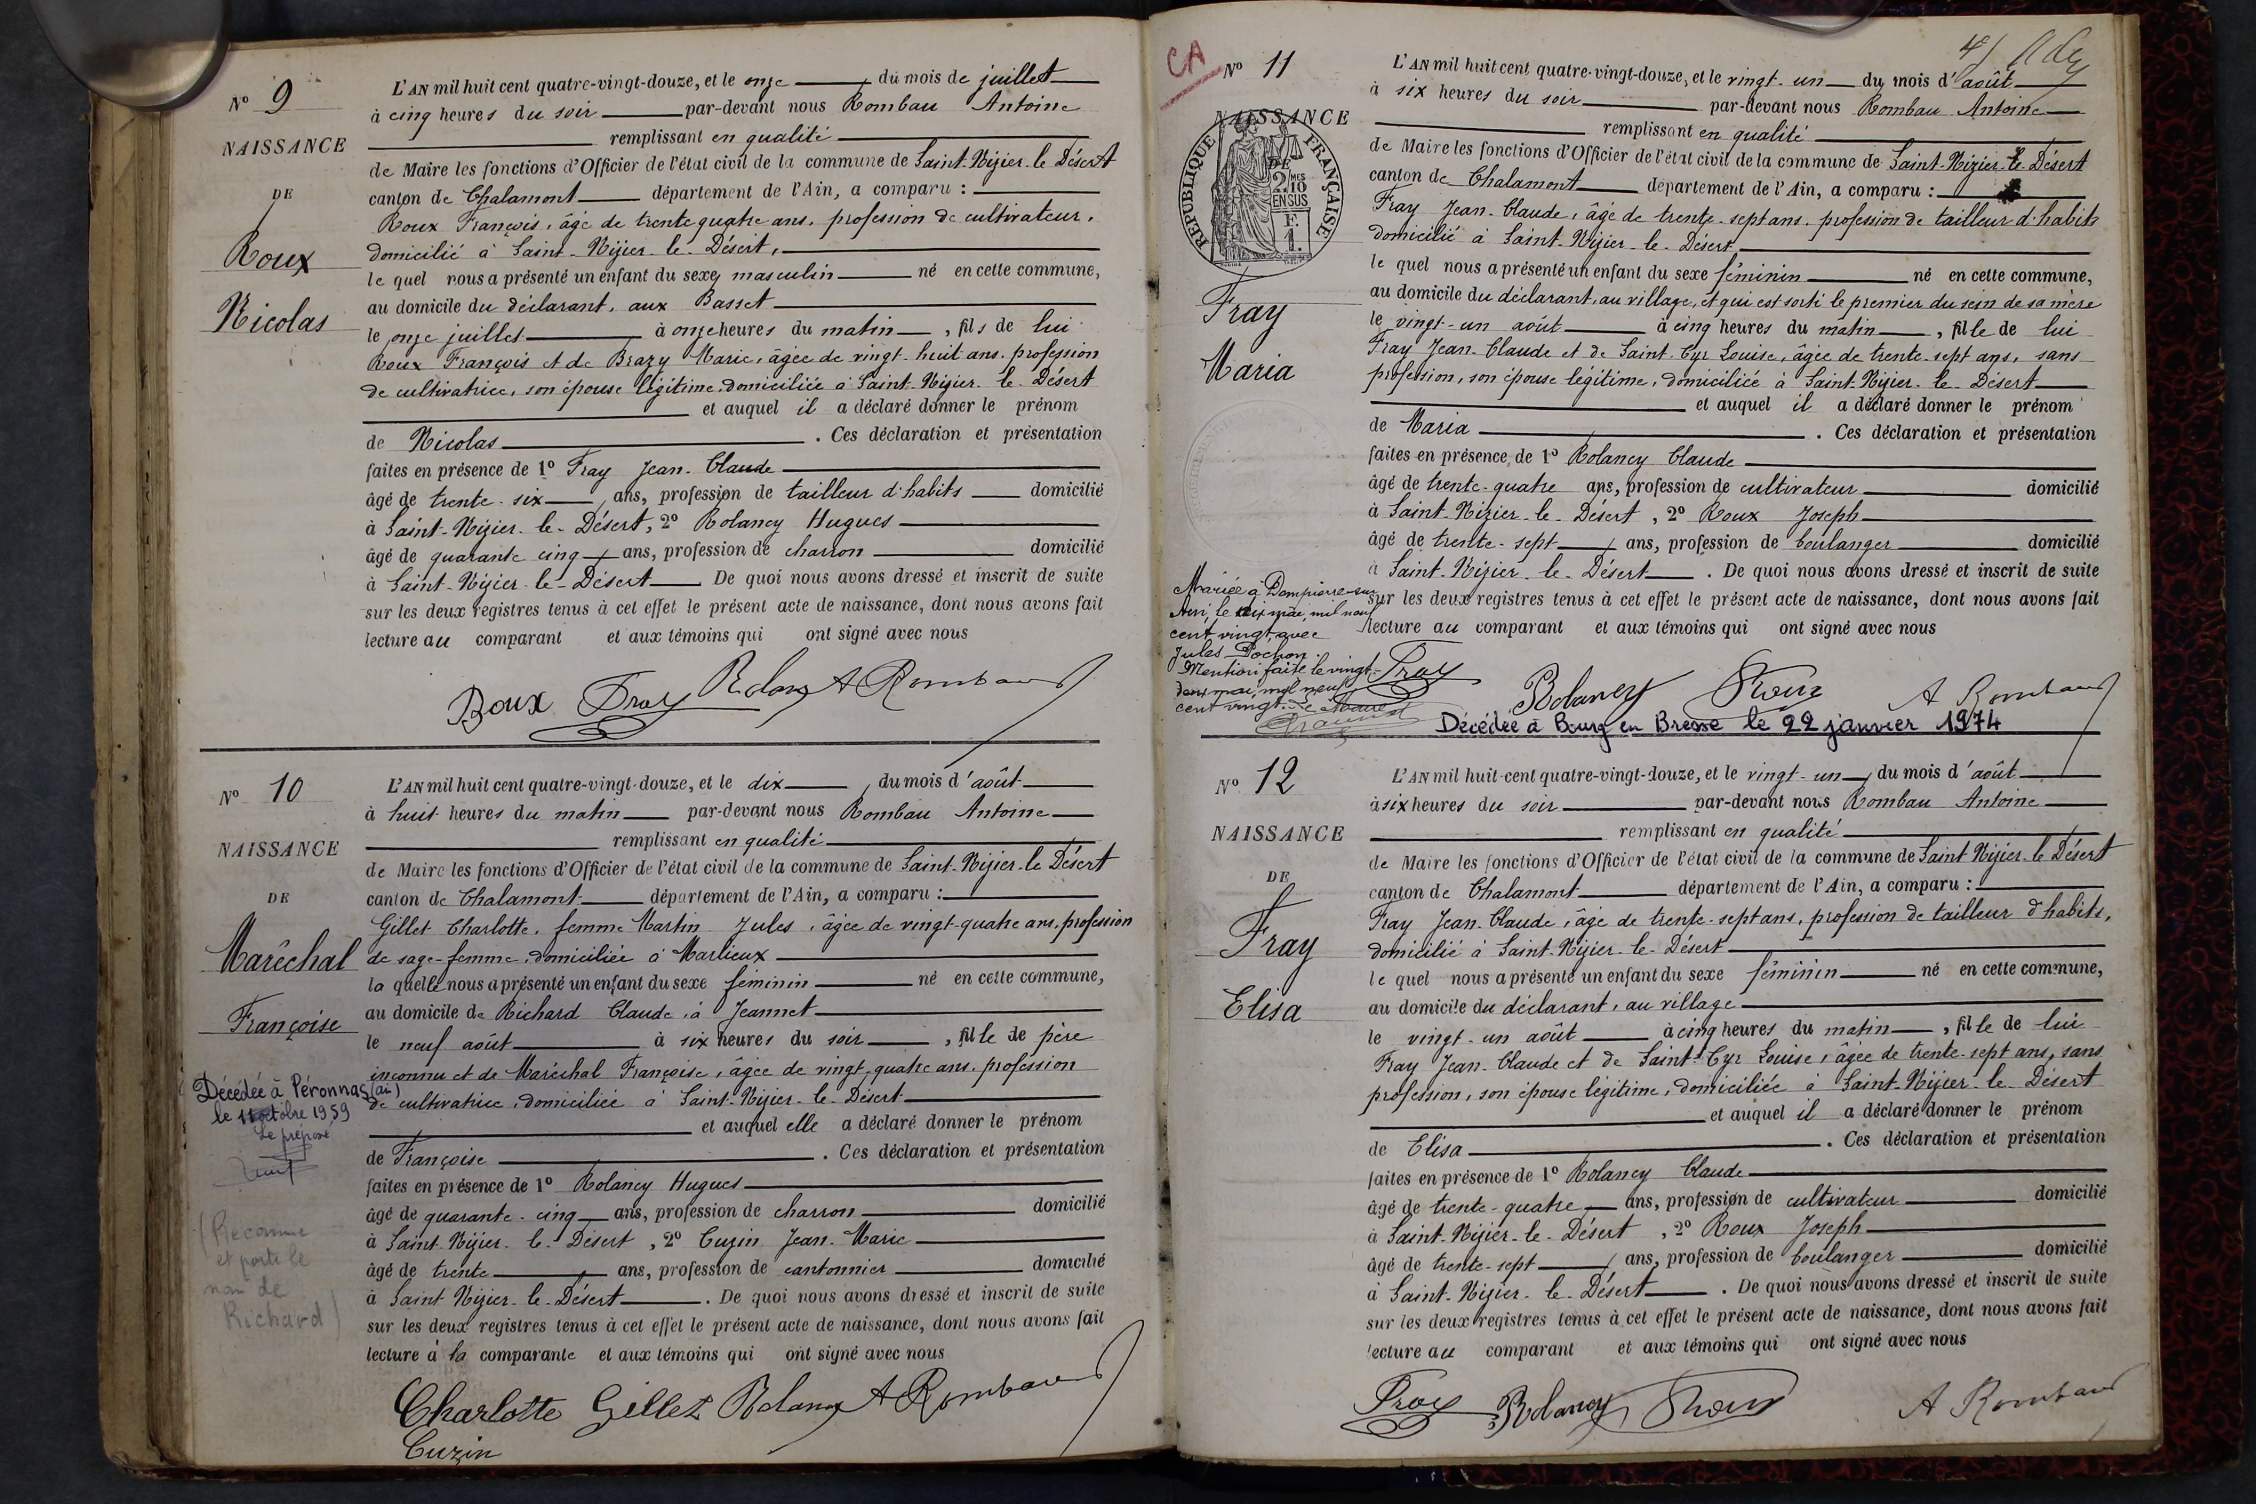 N° 9
NAISSANCE
DE
Roux
Nicolas
L'AN mil huit cent quatre-vingt-douze, et le onze du mois de juillet
à cinq heures du soir par-devant nous Rombau Antoine
remplissant en qualité
de Maire les fonctions d'Officier de l'état civil de la commune de Saint-Nizier-le-Désert
canton de Chalamont département de l'Ain, a comparu :
Roux François, âgé de trente quatre ans, profession de cultivateur,
domicilié à Saint-Nizier-le-Désert,
le quel nous a présenté un enfant du sexe masculin né en cette commune,
au domicile du déclarant, aux Basset
le onze juillet à onze heures du matin, fils de lui
Roux François et de Brazy Marie, âgée de vingt-huit ans, profession
de cultivatrice, son épouse légitime, domiciliée à Saint-Nizier-le-Désert
et auquel il a déclaré donner le prénom
de Nicolas. Ces déclaration et présentation
faites en présence de 1° Fray Jean-Claude
âgé de trente-six ans, profession de tailleur d'habits domicilié
à Saint-Nizier-le-Désert, 2° Rolancy Hugues
âgé de quarante cinq ans, profession de charron domicilié
à Saint-Nizier-le-Désert De quoi nous avons dressé et inscrit de suite
sur les deux registres tenus à cet effet le présent acte de naissance, dont nous avons fait
lecture au comparant et aux témoins qui ont signé avec nous
Roux Fray Rolancy A Rombau
N° 10
NAISSANCE
DE
Maréchal
Françoise
Décédée à Péronnas (ain)
le 11 octobre 1959
Le préposé
(Reconnue
et porte le
nom de
Richard)
L'AN mil huit cent quatre-vingt-douze, et le dix du mois d'août
à huit heures du matin par-devant nous Rombau Antoine
remplissant en qualité
de Maire les fonctions d'Officier de l'état civil de la commune de Saint-Nizier-le-Désert
canton de Chalamont département de l'Ain, a comparu :
Gillet Charlotte, femme Martin Jules, âgée de vingt-quatre ans, profession
de sage-femme, domiciliée à Marlieux
la quelle nous a présenté un enfant du sexe féminin né en cette commune,
au domicile de Richard Claude, à Jeannet
le neuf août à six heures du soir, fille de père
inconnu et de Maréchal Françoise, âgée de vingt quatre ans, profession
de cultivatrice, domiciliée à Saint-Nizier-le-Désert
et auquel elle a déclaré donner le prénom
de Françoise. Ces déclaration et présentation
faites en présence de 1° Rolancy Hugues
âgé de quarante-cinq ans, profession de charron domicilié
à Saint-Nizier-le-Désert, 2° Cuzin Jean-Marie
âgé de trente ans, profession de cantonnier domicilié
à Saint Nizier-le-Désert. De quoi nous avons dressé et inscrit de suite
sur les deux registres tenus à cet effet le présent acte de naissance, dont nous avons fait
lecture à la comparante et aux témoins qui ont signé avec nous
Charlotte Gillet Rolancy A Rombau
Cuzin
CA
4
N° 11
NAISSANCE
DE
RÉPUBLIQUE FRANÇAISE
2/10MES
EN SUS
F.
1.
Fray
Maria
Mariée à Dompierre-sur-
Ain, le six mai, mil neuf
cent vingt avec
Jules Pochon.
Mention faite le vingt-
deux mai, mil neuf
cent vingt. Le Maire
L'AN mil huit cent quatre-vingt-douze, et le vingt-un du mois d'août
à six heures du soir par-devant nous Rombau Antoine
remplissant en qualité
de Maire les fonctions d'Officier de l'état civil de la commune de Saint-Nizier-le-Désert
canton de Chalamont département de l'Ain, a comparu :
Fray Jean-Claude, âgé de trente-sept ans, profession de tailleur d'habits
domicilié à Saint-Nizier-le-Désert
le quel nous a présenté un enfant du sexe féminin né en cette commune,
au domicile du déclarant, au village, et qui est sorti le premier du sein de sa mère
le vingt-un août à cinq heures du matin, fille de lui
Fray Jean-Claude et de Saint-Cyr Louise, âgée de trente-sept ans, sans
profession, son épouse légitime, domiciliée à Saint-Nizier-le-Désert
et auquel il a déclaré donner le prénom
de Maria. Ces déclaration et présentation
faites en présence de 1° Rolancy Claude
âgé de trente-quatre ans, profession de cultivateur domicilié
à Saint-Nizier-le-Désert, 2° Roux Joseph
âgé de trente-sept ans, profession de boulanger domicilié
à Saint-Nizier-le-Désert. De quoi nous avons dressé et inscrit de suite
sur les deux registres tenus à cet effet le présent acte de naissance, dont nous avons fait
lecture au comparant et aux témoins qui ont signé avec nous
Fray Rolancy Roux A Rombau
Décédée à Bourg en Bresse le 22 janvier 1974
N° 12
NAISSANCE
DE
Fray
Elisa
L'AN mil huit cent quatre-vingt-douze, et le vingt-un du mois d'août
à six heures du soir par-devant nous Rombau Antoine
remplissant en qualité
de Maire les fonctions d'Officier de l'état civil de la commune de Saint Nizier-le-Désert
canton de Chalamont département de l'Ain, a comparu :
Fray Jean-Claude, âgé de trente-sept ans, profession de tailleur d'habits,
domicilié à Saint-Nizier-le-Désert
le quel nous a présenté un enfant du sexe féminin né en cette commune,
au domicile du déclarant, au village
le vingt-un août à cinq heures du matin, fille de lui
Fray Jean-Claude et de Saint-Cyr Louise, âgée de trente-sept ans, sans
profession, son épouse légitime, domiciliée à Saint-Nizier-le-Désert
et auquel il a déclaré donner le prénom
de Elisa. Ces déclaration et présentation
faites en présence de 1° Rolancy Claude
âgé de trente-quatre ans, profession de cultivateur domicilié
à Saint-Nizier-le-Désert, 2° Roux Joseph
âgé de trente-sept ans, profession de boulanger domicilié
à Saint-Nizier-le-Désert. De quoi nous avons dressé et inscrit de suite
sur les deux registres tenus à cet effet le présent acte de naissance, dont nous avons fait
lecture au comparant et aux témoins qui ont signé avec nous
Fray Rolancy Roux A Rombau